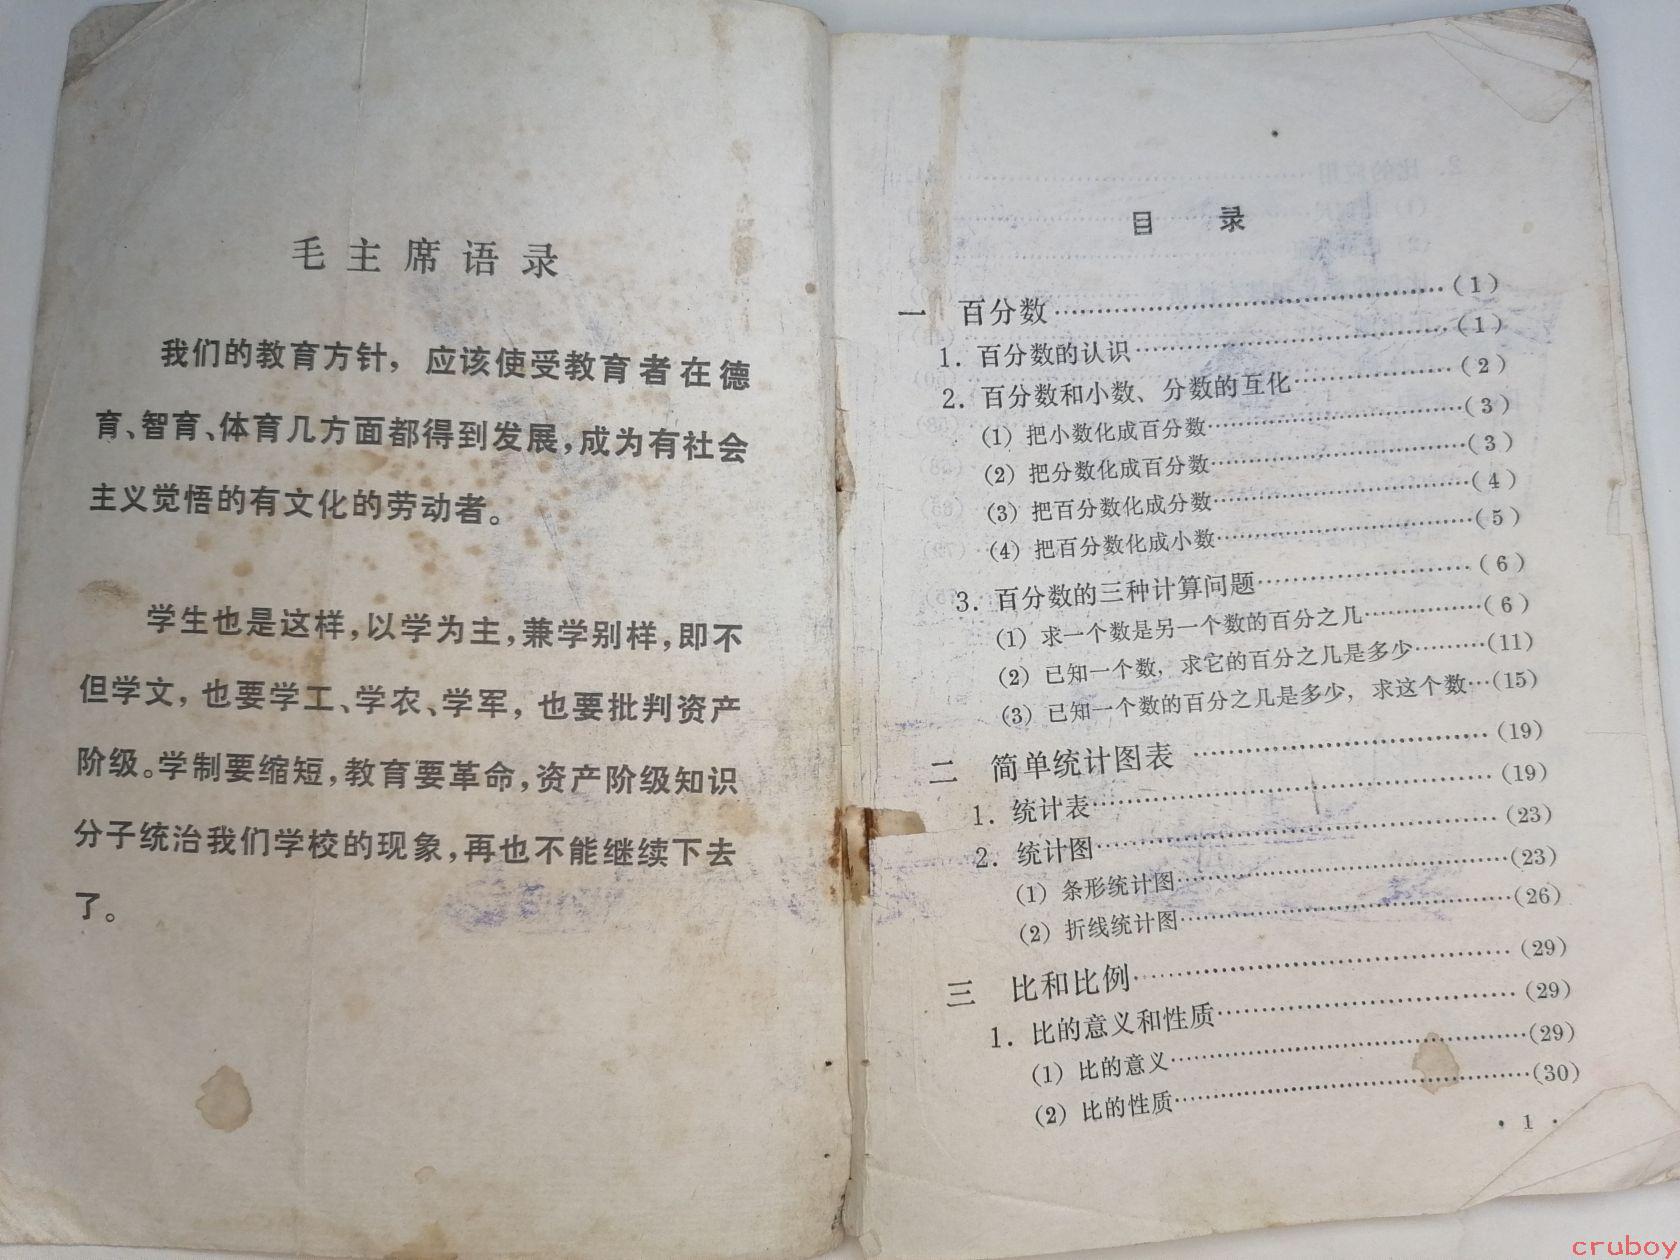 毛主席语录
我们的教育方针，应该使受教育者在德
育、智育、体育几方面都得到发展，成为有社会
主义觉悟的有文化的劳动者。
学生也是这样，以学为主，兼学别样，即不
但学文，也要学工、学农、学军，也要批判资产
阶级。学制要缩短，教育要革命，资产阶级知识
分子统治我们学校的现象，再也不能继续下去
了。
目 录
一 百分数……(1)
1. 百分数的认识……(1)
2. 百分数和小数、分数的互化……(2)
(1) 把小数化成百分数……(3)
(2) 把分数化成百分数……(3)
(3) 把百分数化成分数……(4)
(4) 把百分数化成小数……(5)
3. 百分数的三种计算问题……(6)
(1) 求一个数是另一个数的百分之几……(6)
(2) 已知一个数，求它的百分之几是多少……(11)
(3) 已知一个数的百分之几是多少，求这个数…(15)
二 简单统计图表……(19)
1. 统计表……(19)
2. 统计图……(23)
(1) 条形统计图……(23)
(2) 折线统计图……(26)
三 比和比例……(29)
1. 比的意义和性质……(29)
(1) 比的意义……(29)
(2) 比的性质……(30)
· 1 ·
cruboy